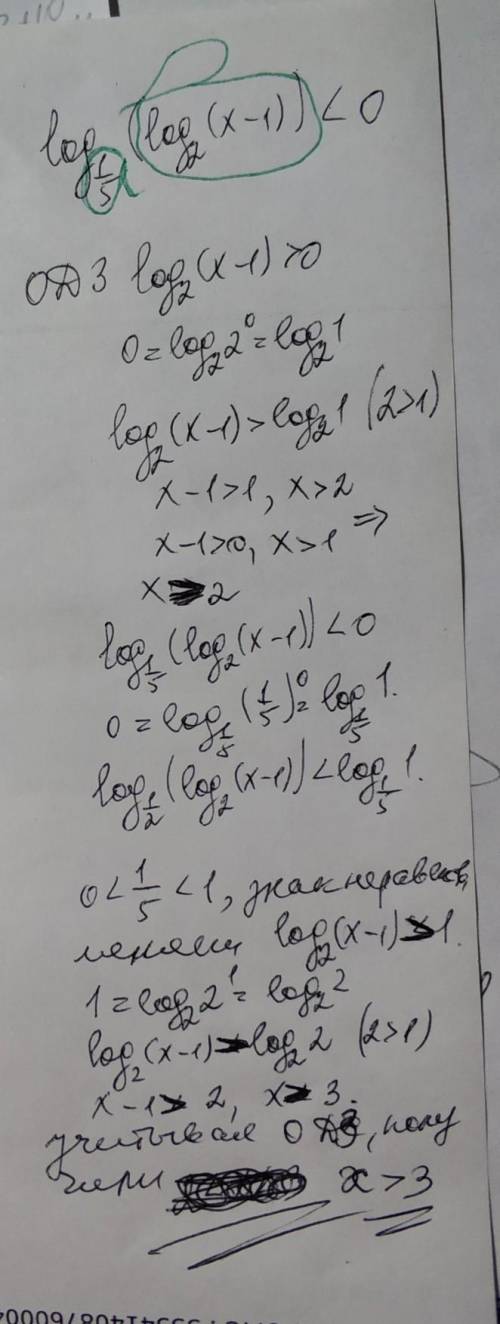 log_{1/5} (log_2 (x-1)) < 0
ОДЗ log_2 (x-1) > 0
0 = log_2 2^0 = log_2 1
log_2 (x-1) > log_2 1 (2>1)
x-1>1, x>2
x-1>0, x>1 ⇒
x > 2
log_{1/5} (log_2 (x-1)) < 0
0 = log_{1/5} (1/5)^0 = log_{1/5} 1.
log_{1/2} (log_2 (x-1)) < log_{1/5} 1.
0 < 1/5 < 1, знак неравенств,
меняем log_2 (x-1) > 1.
1 = log_2 2^1 = log_2 2
log_2 (x-1) > log_2 2 (2>1)
x-1 > 2, x > 3.
учитывая ОДЗ, полу
чили x > 3